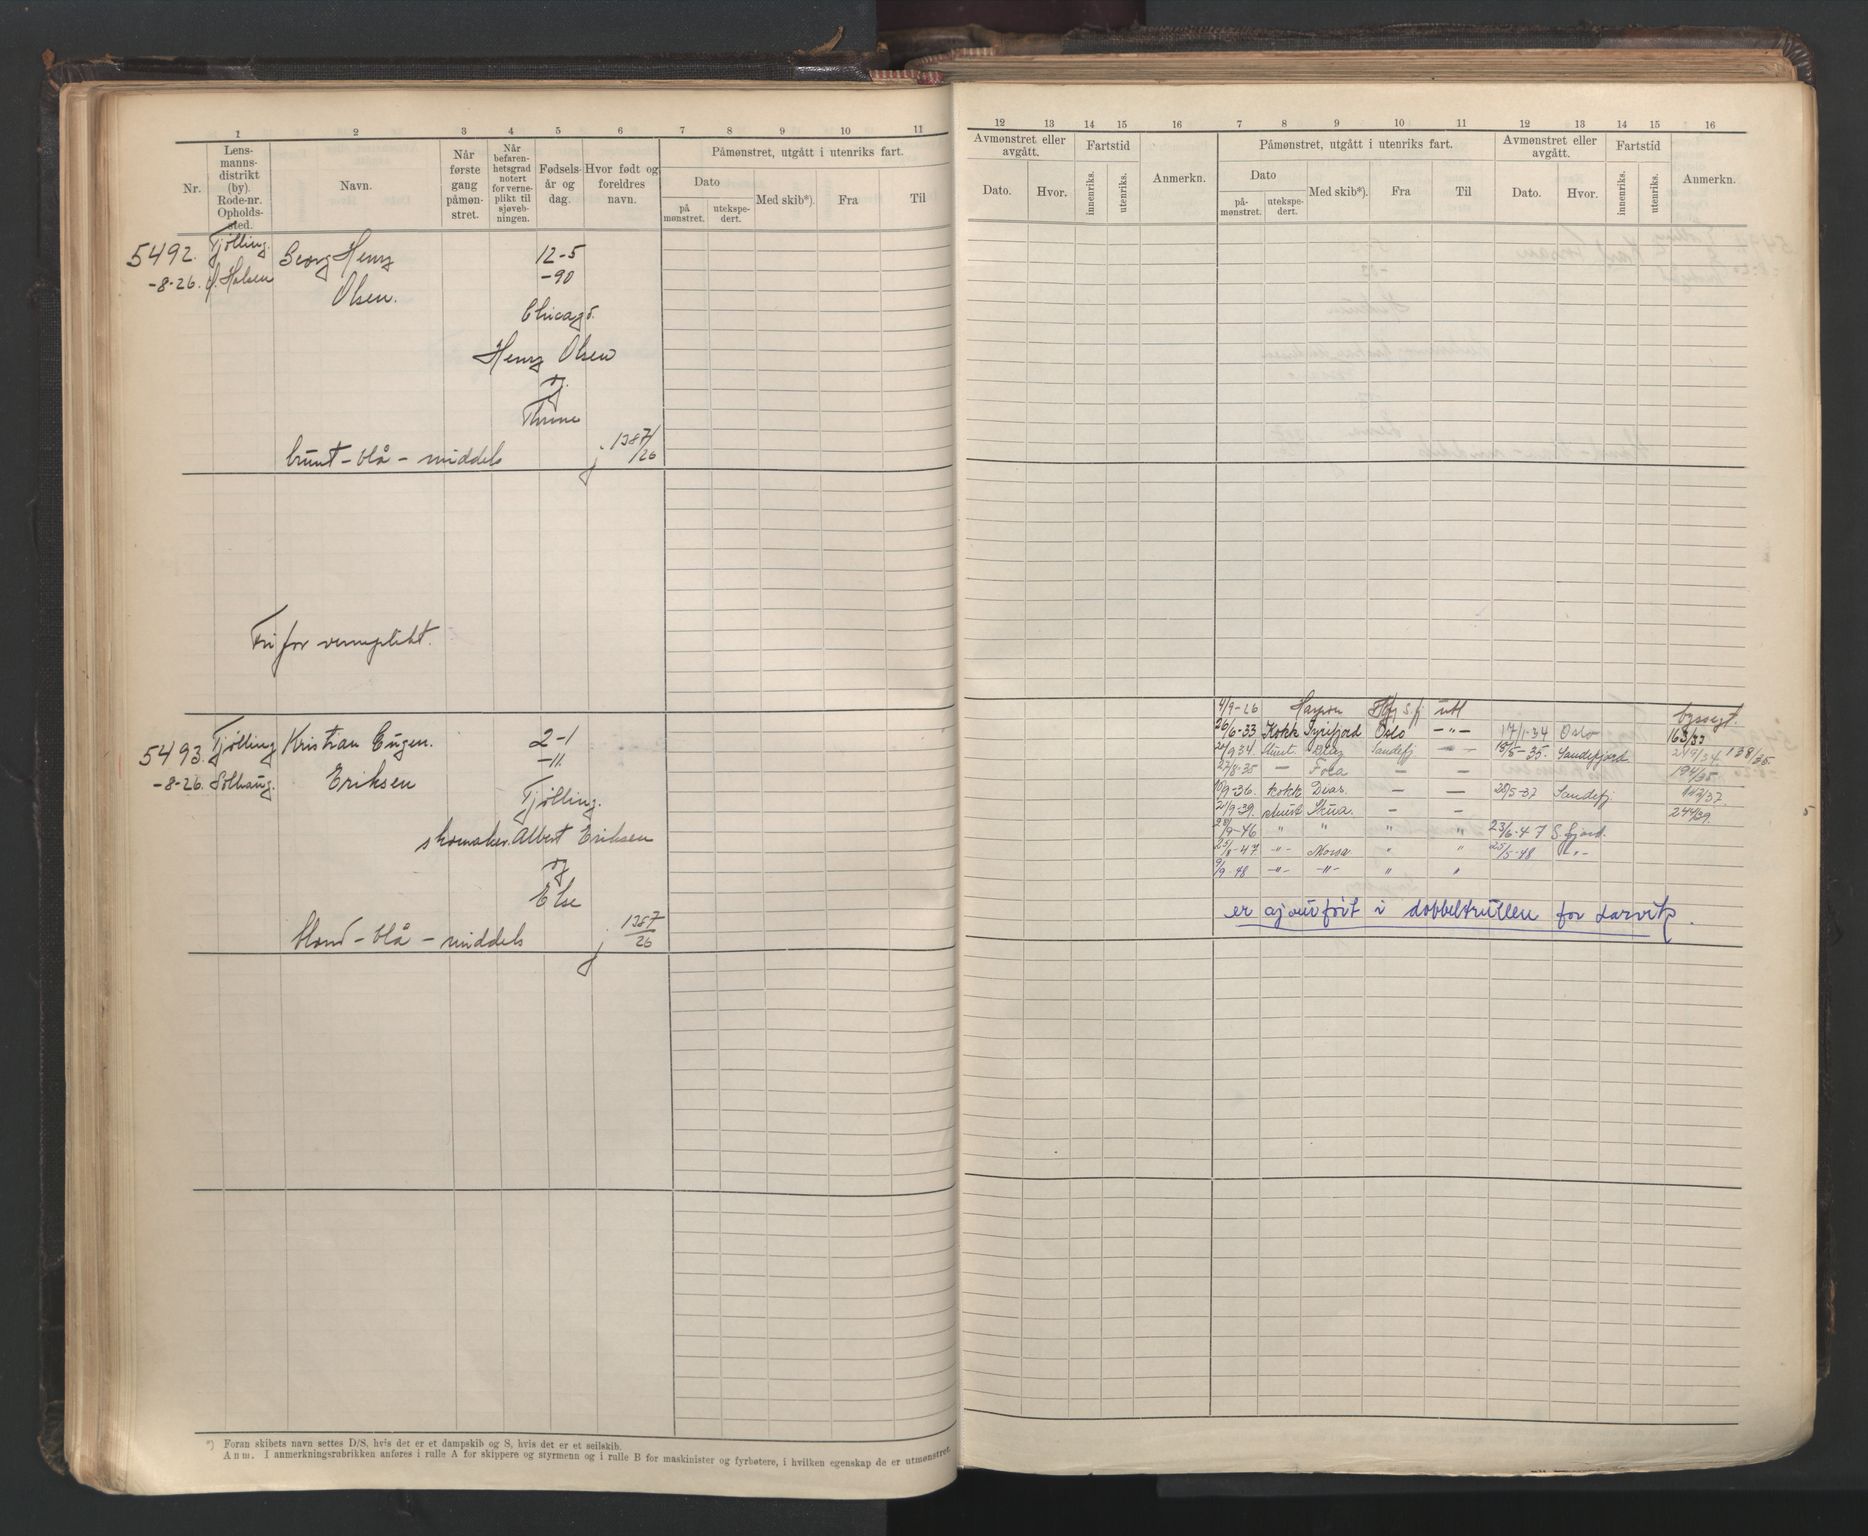 1 2 3 4 5 6 7 8 9 10 11
Nr.
Lens-
manns-
distrikt
(by).
Rode-nr.
Opholds-
sted.
Navn.
Når
første
gang
påmøn-
stret.
Når
befaren-
hetsgrad
notert
for verne-
plikt til
sjøveb-
ningen.
Fødsels-
år og
dag.
Hvor født og
foreldres
navn.
Påmønstret, utgått i utenriks fart.
Dato
på
mønstret.
utekspe-
dert.
Med skib*).
Fra
Til
5492. Tjølling. Georg Henry 12-5
-8-26. Olsen. -90
Chicago.
Henry Olsen
og
Thrine
brunt - blå - middels j 1387/26
Fri for verneplikt.
5493. Tjølling Kristian Eugen. 2-1
-8-26. Solhaug. Eriksen -11
Tjølling.
skomaker Albert Eriksen
og
Else
blond - blå - middels j 1387/26
*) Foran skibets navn settes D/S, hvis det er et dampskib og S, hvis det er et seilskib.
Anm. I anmerkningsrubrikken anføres i rulle A for skippere og styrmenn og i rulle B for maskinister og fyrbøtere, i hvilken egenskap de er utmønstret.
12 13 14 15 16 7 8 9 10 11 12 13 14 15 16
Avmønstret eller
avgått.
Dato.
Hvor.
Fartstid
innenriks.
utenriks.
Anmerkn.
Påmønstret, utgått i utenriks fart.
Dato
på-
mønstret.
utekspe-
dert.
Med skib*).
Fra
Til
Avmønstret eller
avgått.
Dato.
Hvor.
Fartstid
innenriks.
utenriks.
Anmerkn.
4/9-26 S.fj utl byssegt.
26/6-33 Kokk Syrifjord Oslo -"- 17/1-34 Oslo 163/33
20/9 34. Sandefj - 18/5-35. Sandefjord 138/35
27/8-35 - - - 194/35.
10/9-36. kokk - - 28/5-37 Sandefj. 112/37.
21/9-39. Skua. - - 244/39.
28/9-46 " " " " 23/6-47 S.fjord.
25/8-47 -"- Morsa. " " 25/5-48 -"-
9/9-48 -"- -"- " "
er ajourført i dobbeltrullen for Larvik.
5